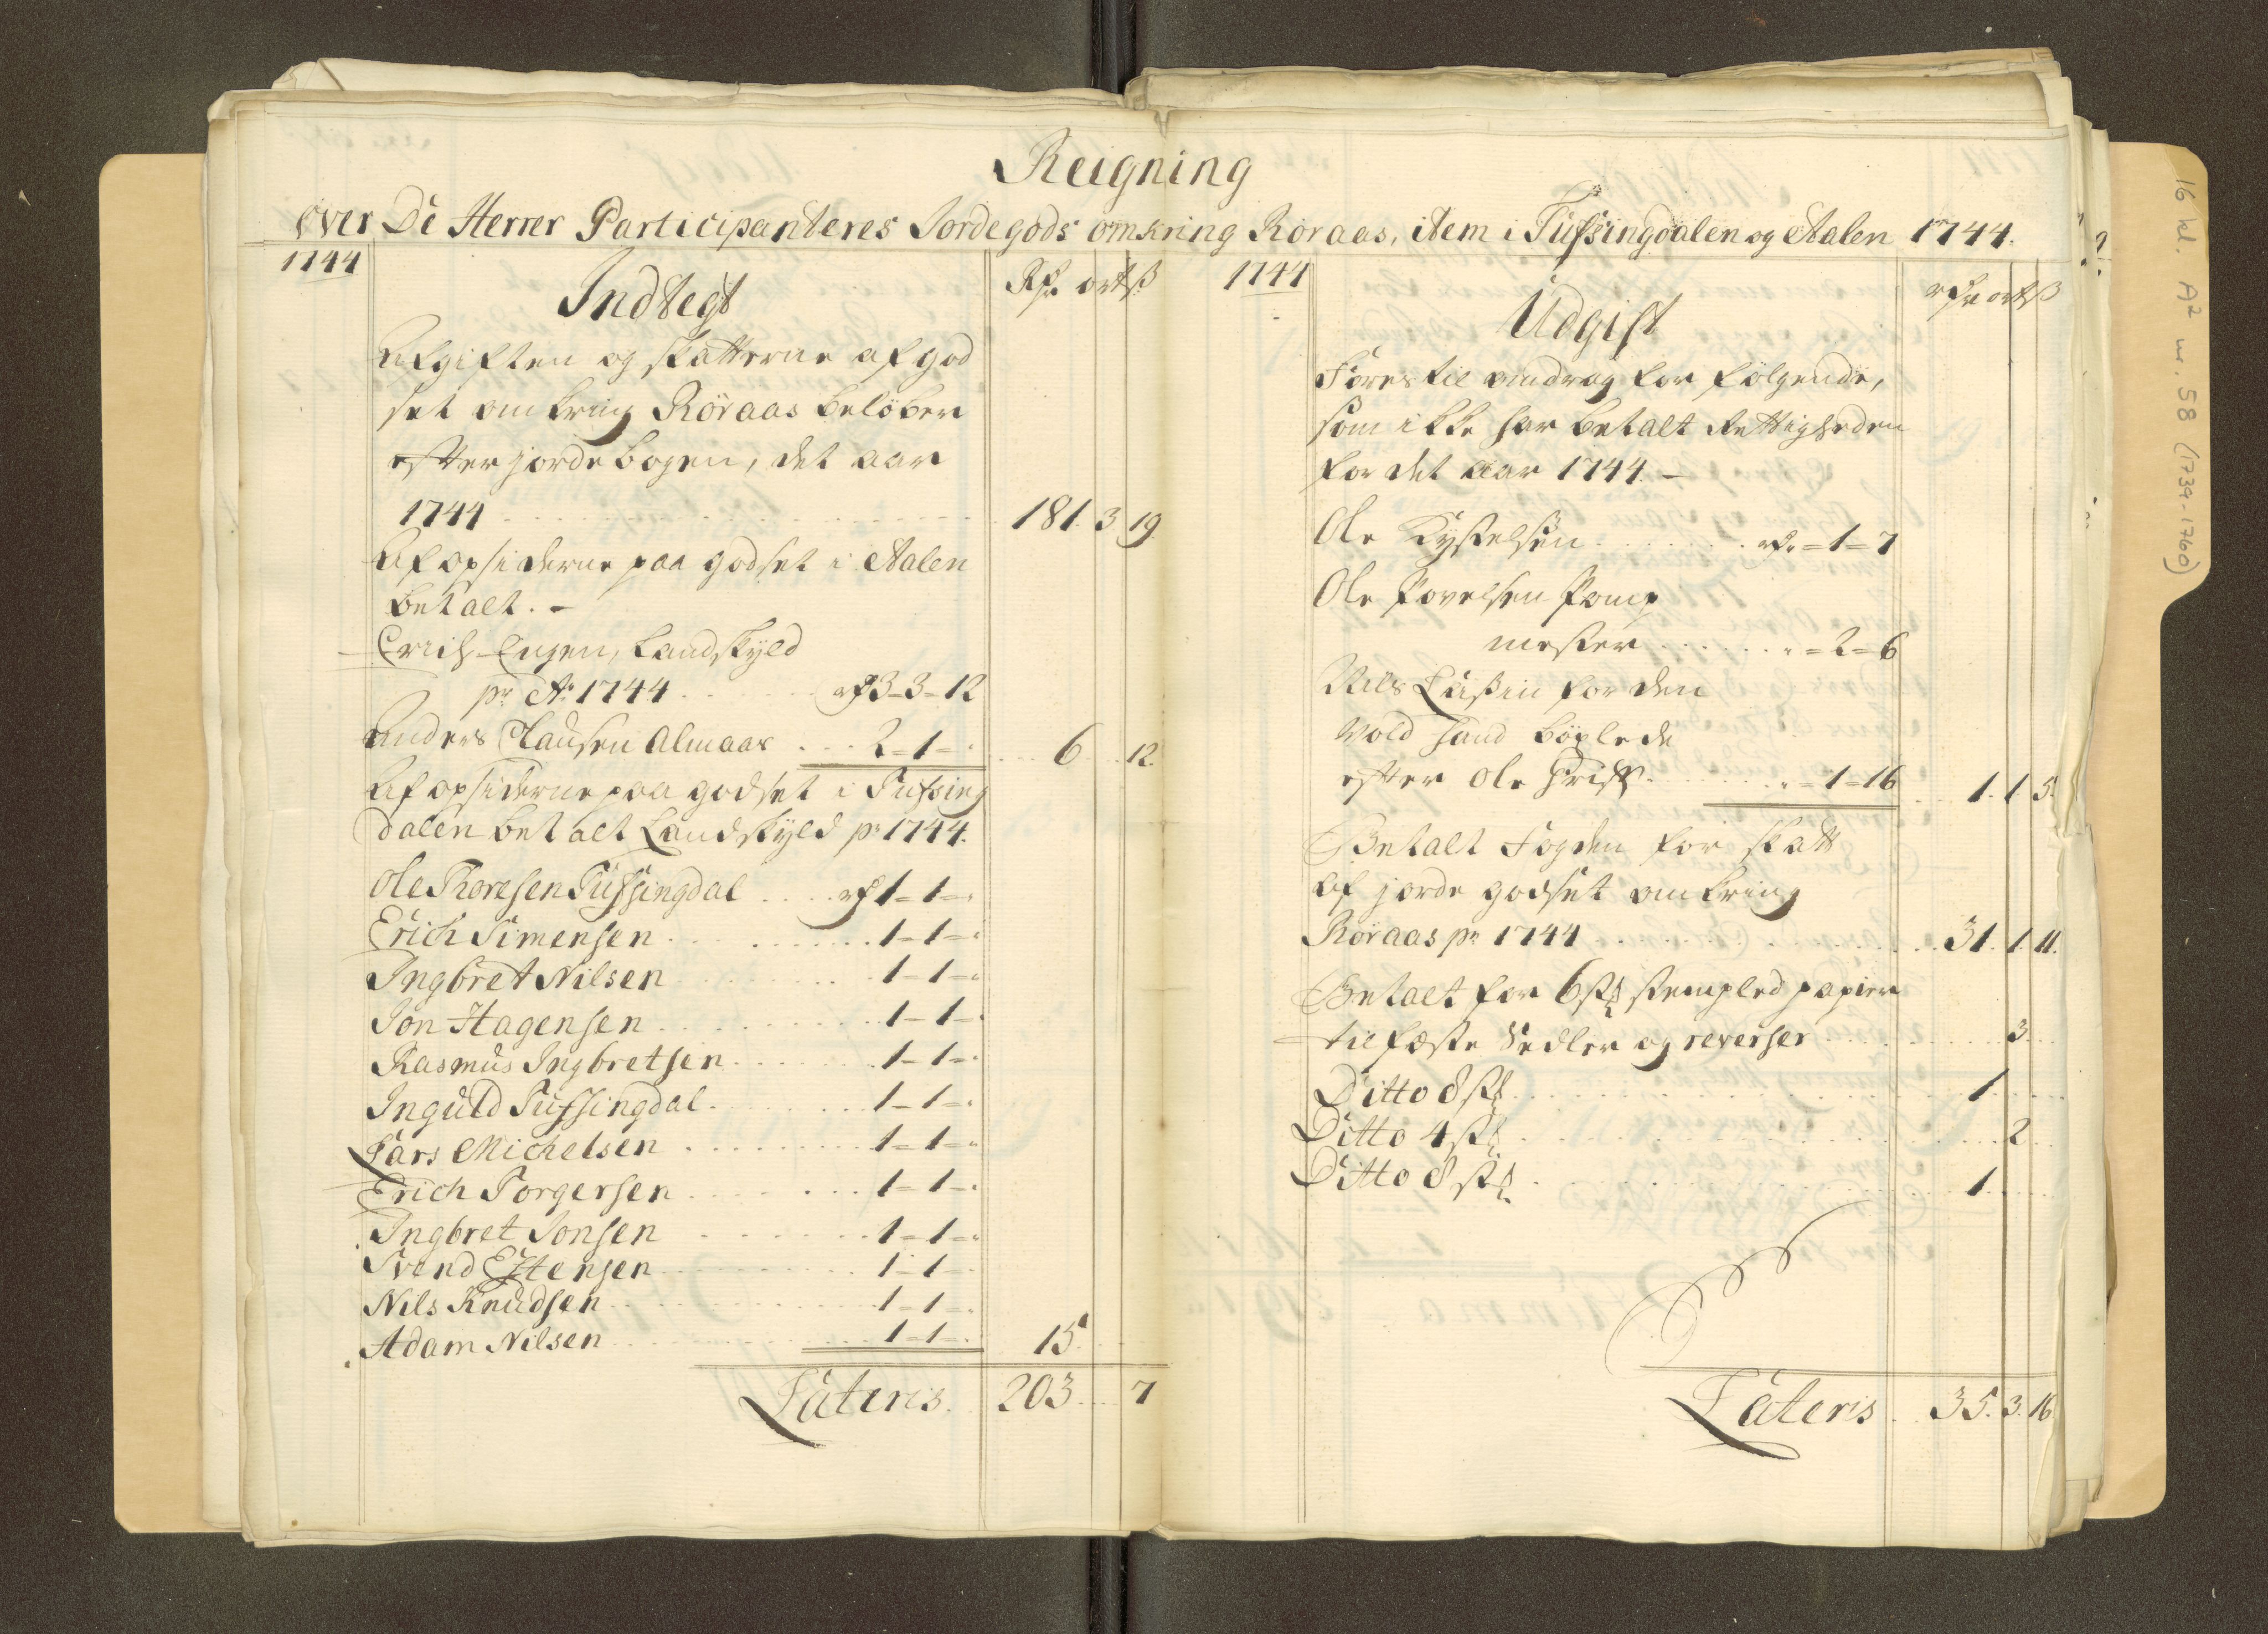 Reigning
over De Herrer Participanteres Jordegods omkring Röraas, item i Tufsingdalen og Aalen 1744.
1744
Indtegt
Rdr. ort ß
Afgiften og skatterne af god
set omkring Röraas beløber
efter jordebogen, det aar
1744 181. 3 19.
Af opsiderne paa godset i Aalen
betalt. -
Erich Engen, Landskyld
pr. Ao. 1744 rdr 3-3-12
Anders Clausen Almaas 2-1-" 6 12.
Af opsiderne paa godset i Tufsing
dalen betalt Landskyld pr. 1744.
Ole Thoresen Tufsingdal rdr 1-1-"
Erich Simensen 1-1-"
Ingbret Nilsen 1-1-"
Jon Hagensen 1-1-"
Rasmus Ingbretsen 1-1-"
Inguld Tufsingdal 1-1-"
Lars Michelsen 1-1-"
Erich Torgersen 1-1-"
Ingbret Jonsen 1-1-"
Svend Estensen 1-1-
Nils Knudsen 1-1-
Adam Nilsen 1-1-" 15.
Lateris. 203 7
1744
Udgift
rdr ort ß
Føres til andrag for følgende,
som ikke har betalt Rettigheden
for det aar 1744. -
Ole rdr. =1=7
Ole Povelsen Pomp
mester " =2=6
Nils for den
Vold hand
efter Ole " =1=16 1. 1. 5.
Betalt Fogden for skatt
af jorde godset omkring
Röraas pr. 1744 31. 1. 11.
Betalt for 6 st. stempled papier
til fæste Sedler og reverser 3
Ditto 8 st. 1
Ditto 4 st. 2
Ditto 8 st. 1
Lateris 35. 3. 16
16 kl. A2 nr. 58 (1739-1760)